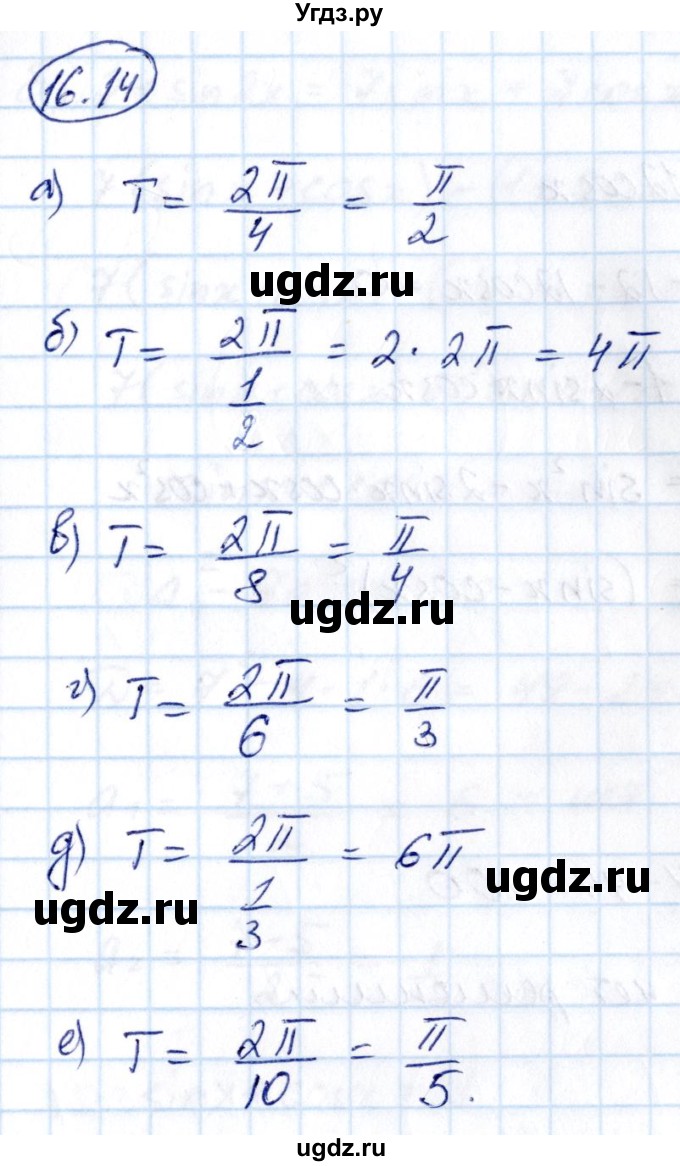 Угдз.ру
16.14
а) T = 2π/4 = π/2
ugdz.ru
б) T = 2π/(1/2) = 2 · 2π = 4π
в) T = 2π/8 = π/4
ugdz.ru
г) T = 2π/6 = π/3
д) T = 2π/(1/3) = 6π
ugdz.ru
ugdz.ru
е) T = 2π/10 = π/5.
ugdz.ru